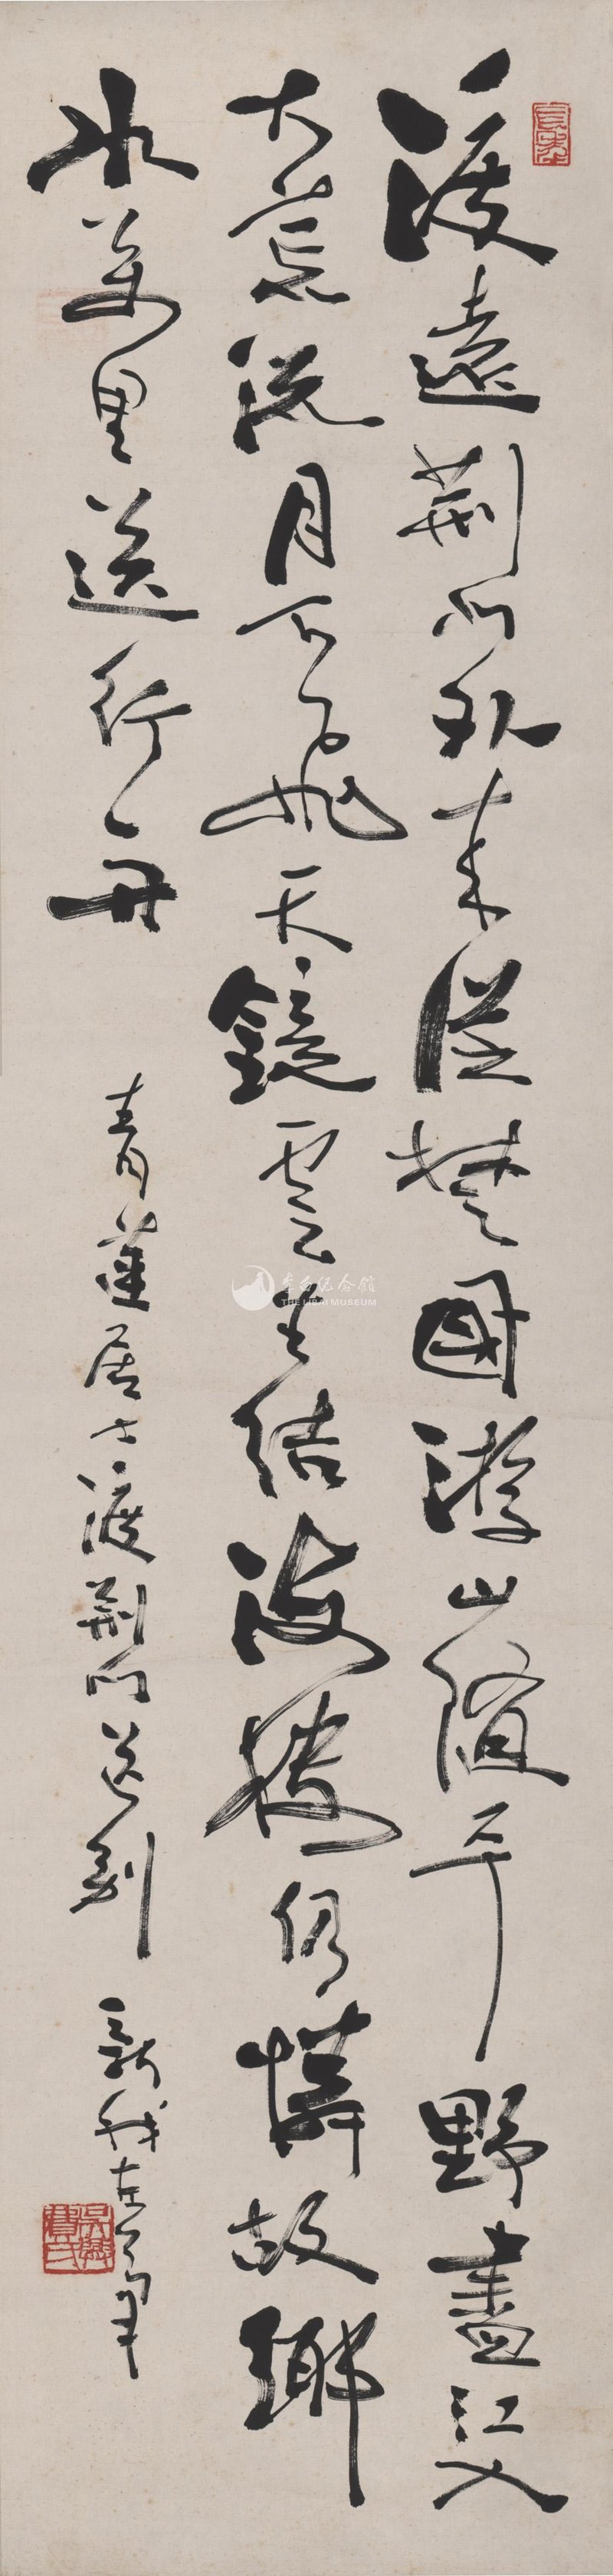 渡遠荆門外来從楚國遊山隨平野盡江入
大荒流月下飛天鏡雲生結海樓仍憐故鄉
水萬里送行舟
青蓮居士渡荆門送别
新我左筆
吴興費氏
李白纪念館
THE LIBAI MUSEUM